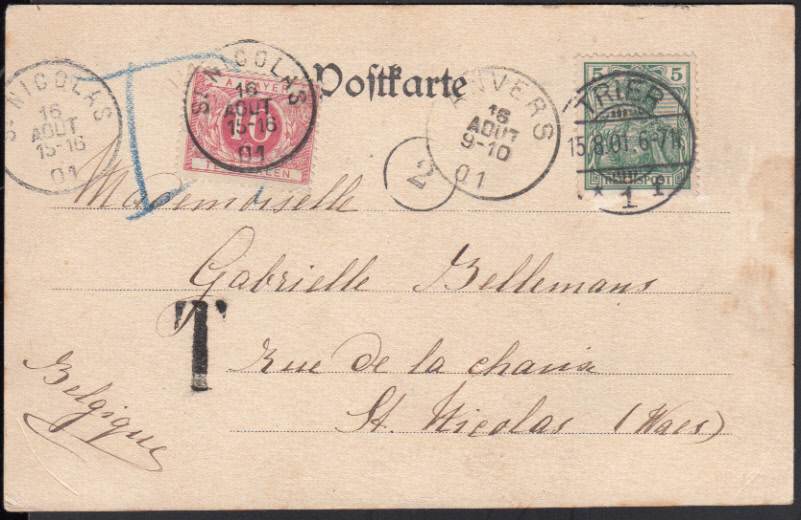 Postkarte
ST NICOLAS
16
AOUT
15-16
01
A PAYER
10
ST NICOLAS
16
AOUT
15-16
01
ANVERS
16
AOUT
9-10
01
2
5 5
REICHSPOST
TRIER
15.8.01.6-7N.
* 1 r
Mademoiselle
Gabrielle Bellemans
T
Rue de la
St. Nicolas (Waes)
Belgique